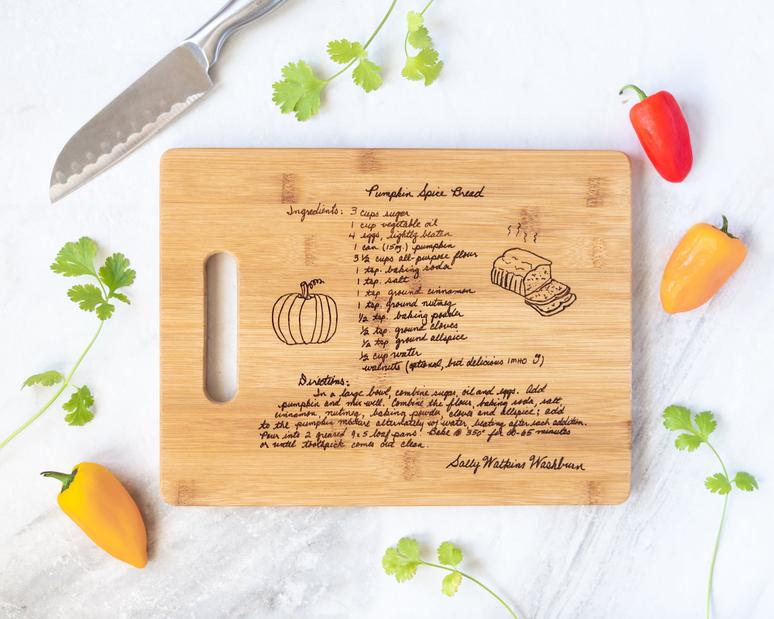 Pumpkin Spice Bread
Ingredients: 3 cups sugar
1 cup vegetable oil
4 eggs, lightly beaten
1 can (15oz.) pumpkin
3 ½ cups all-purpose flour
1 tsp. baking soda
1 tsp. salt
1 tsp. ground cinnamon
1 tsp. ground nutmeg
½ tsp. baking powder
½ tsp. ground cloves
½ tsp. ground allspice
½ cup water
walnuts (optional, but delicious IMHO)
Directions:
In a large bowl, combine sugar, oil and eggs. Add
pumpkin and mix well. Combine the flour, baking soda, salt,
cinnamon, nutmeg, baking powder, cloves and allspice; add
to the pumpkin mixture alternately w/ water, beating after each addition.
Pour into 2 greased 9x5 loaf pans. Bake @ 350° for minutes
or until toothpick comes out clean.
Sally Watkins Washburn